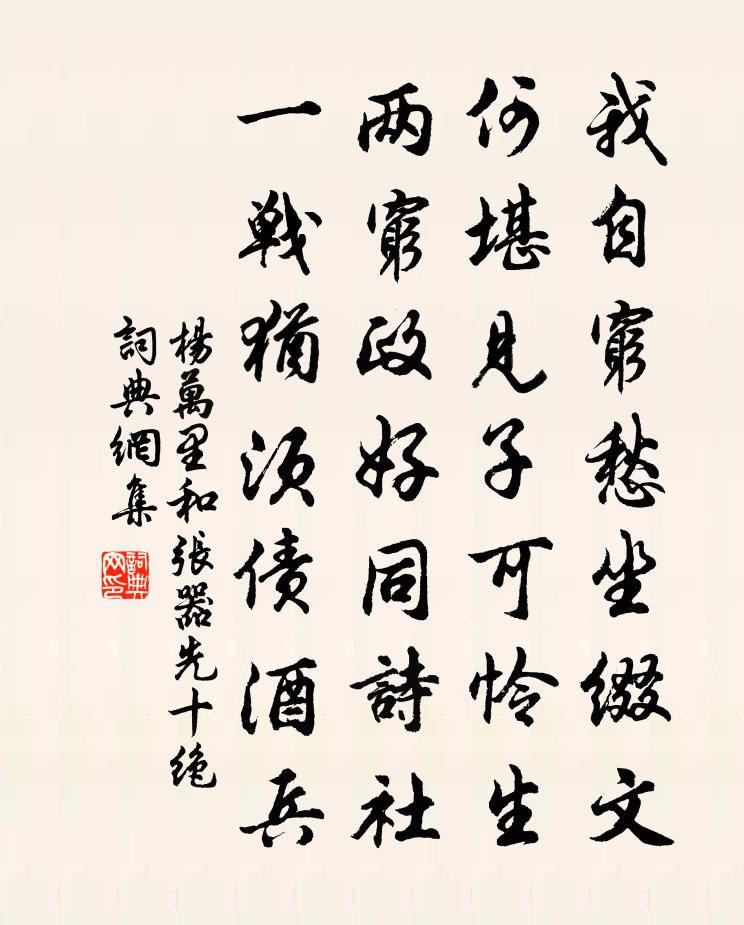 我自窮愁坐缀文
何堪見子可怜生
两窮政好同詩社
一戦猶須债酒兵
楊萬里和張器先十绝
詞典網集
詞典网印